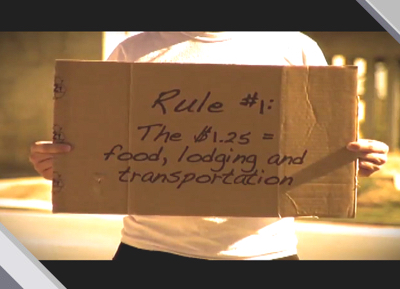 Rule #1:
The $1.25 =
food, lodging and
transportation